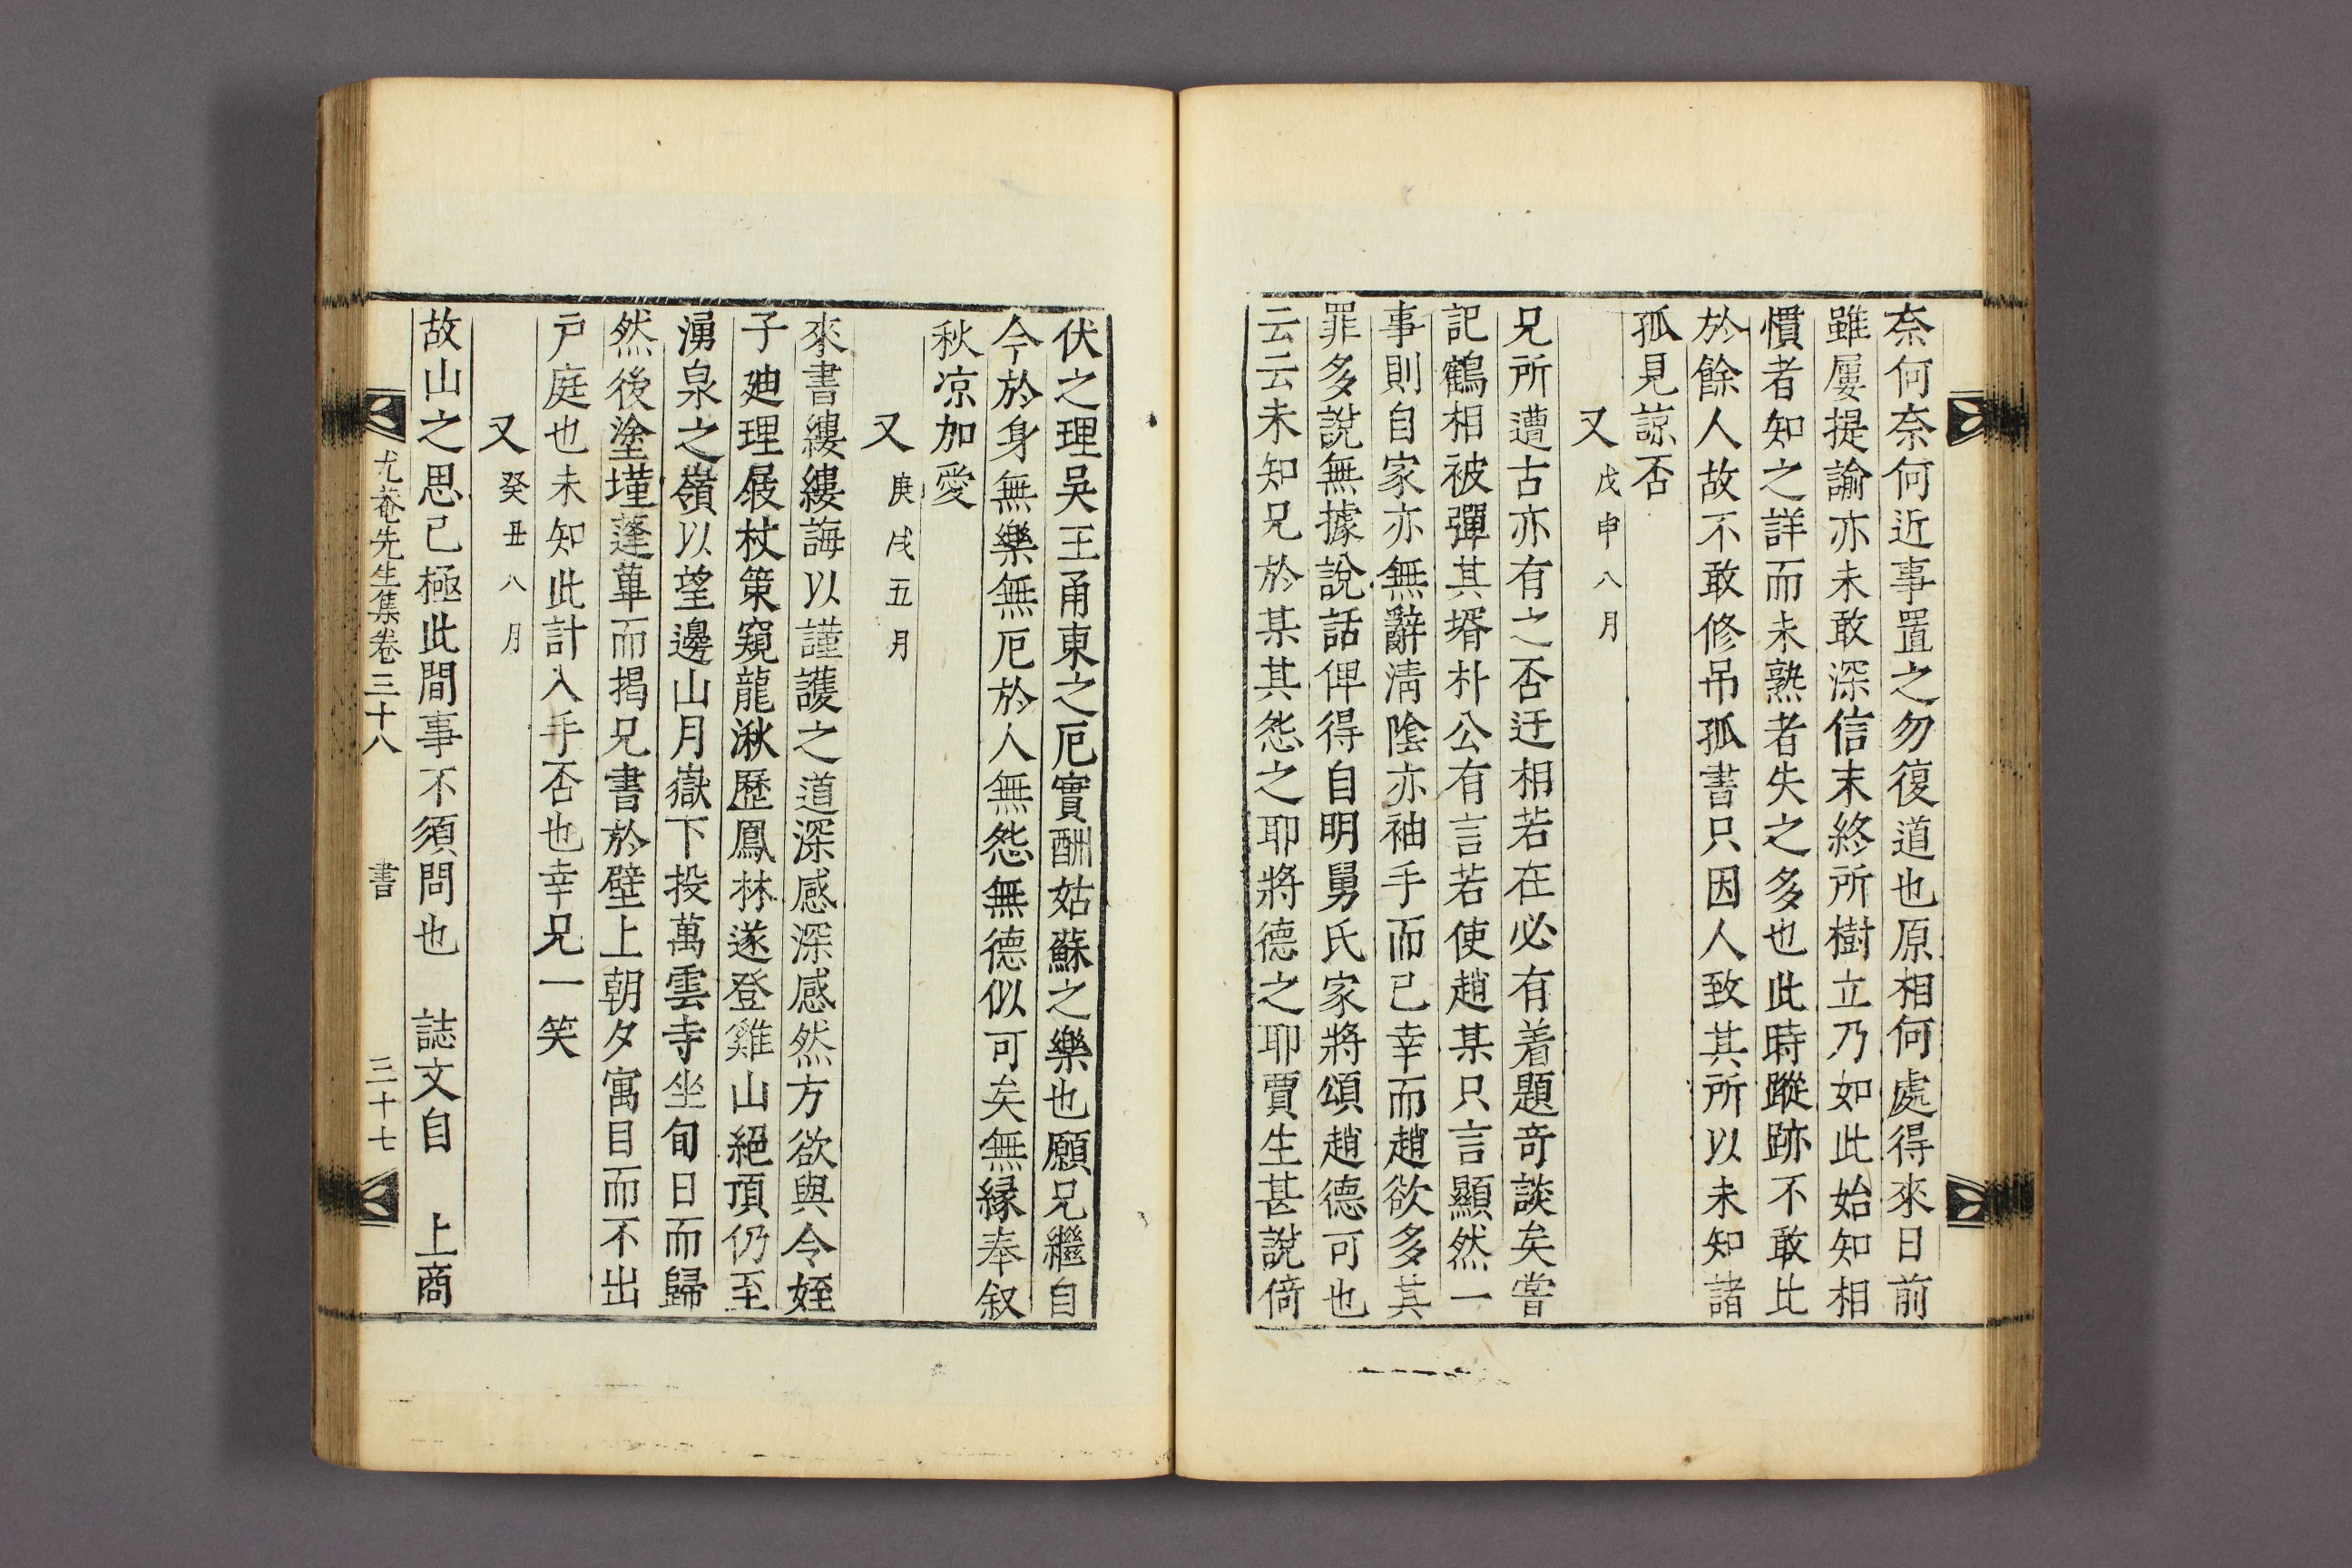 奈何奈何近事置之勿復道也原相何處得來日前
雖屢提諭亦未敢深信末終所樹立乃如此始知相
慣者知之詳而未熟者失之多也此時蹤跡不敢比
於餘人故不敢修吊孤書只因人致其所以未知諸
孤見諒否
又 戊申八月
兄所遭古亦有之否迂相若在必有着題奇談矣嘗
記鶴相被彈其壻朴公有言若使趙某只言顯然一
事則自家亦無辭淸陰亦袖手而已幸而趙欲多其
罪多說無據說話俾得自明舅氏家將頌趙德可也
云云未知兄於某某其怨之耶將德之耶賈生甚說倚
伏之理吳王甬東之厄實酬姑蘇之樂也願兄繼自
今於身無樂無厄於人無怨無德似可矣無緣奉叙
秋凉加愛
又 庚戌五月
來書縷縷誨以謹護之道深感深感然方欲與令姪
子廸理屐杖策窺龍湫歷鳳林遂登雞山絕頂仍至
湧泉之嶺以望邊山月嶽下投萬雲寺坐旬日而歸
然後塗墐蓬蓽而揭兄書於壁上朝夕寓目而不出
戶庭也未知此計入手否也幸兄一笑
又 癸丑八月
故山之思已極此間事不須問也 誌文自 上商
尤菴先生集卷三十八 書 三十七